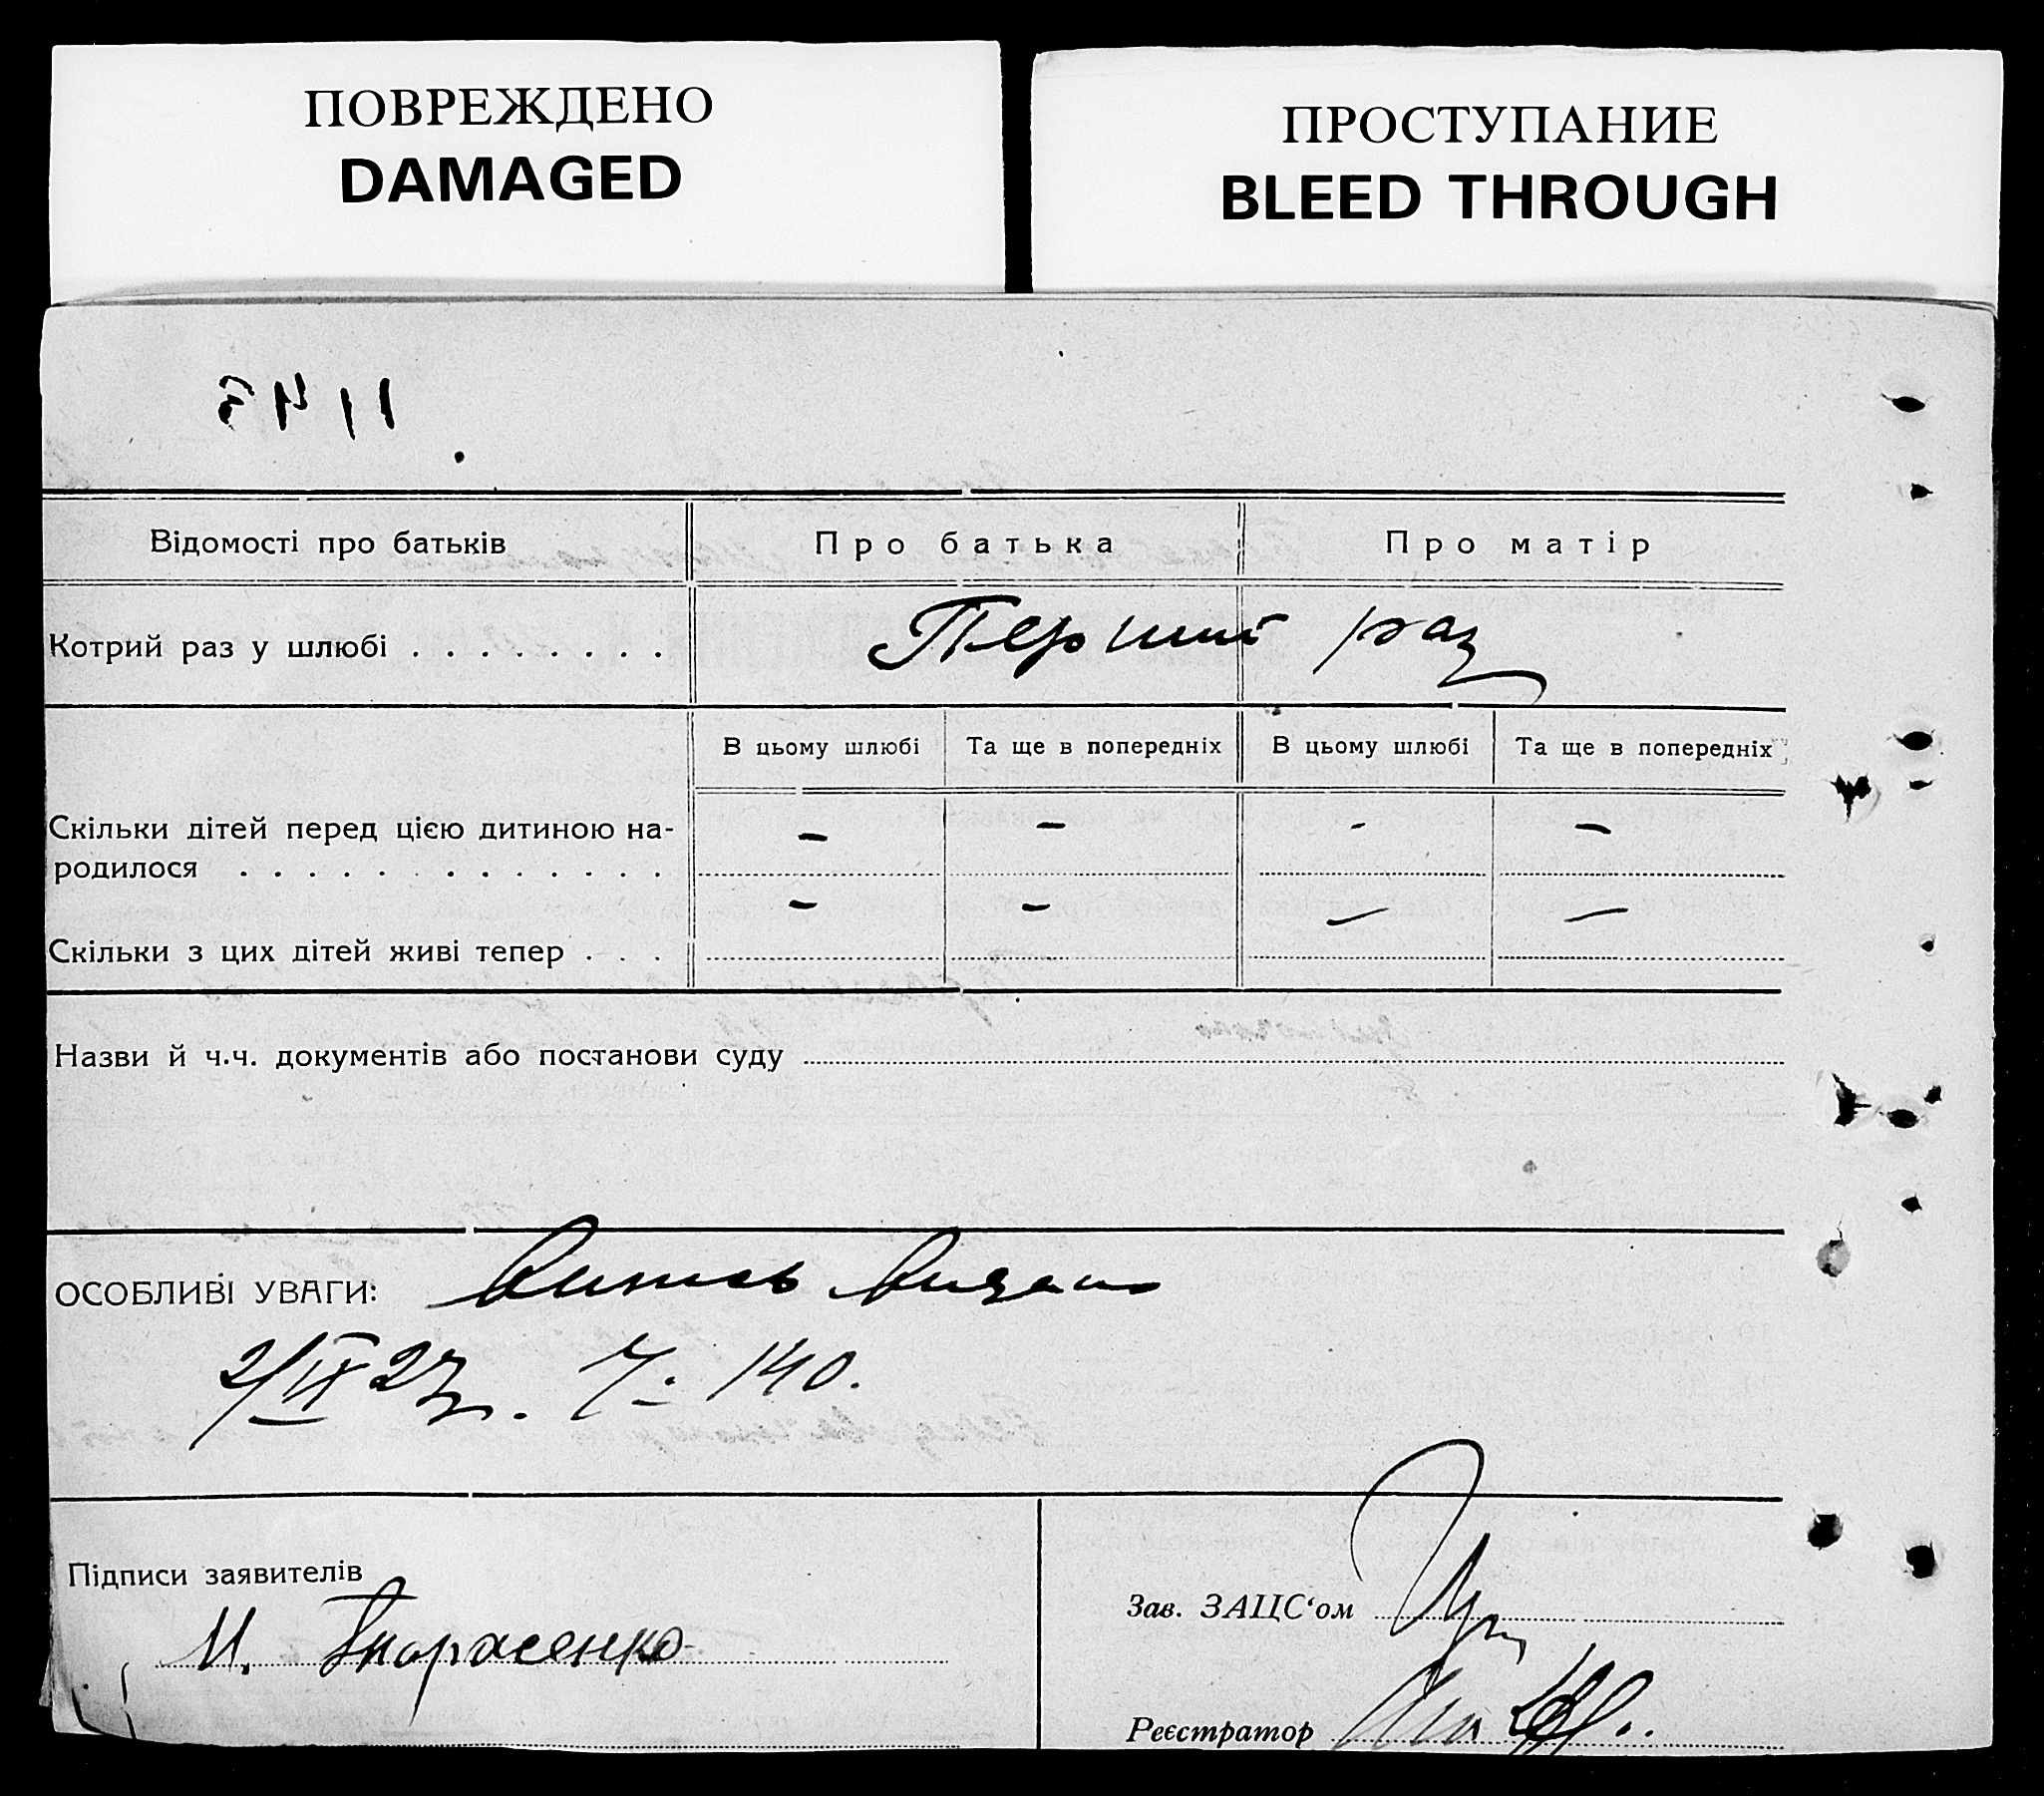 ПОВРЕЖДЕНО
DAMAGED
ПРОСТУПАНИЕ
BLEED THROUGH
Відомості про батьків
Про батька
Про матір
Котрий раз у шлюбі . . . . . . . .
Перший раз
В цьому шлюбі
Та ще в попередніх
В цьому шлюбі
Та ще в попередніх
Скільки дітей перед цією дитиною на-
родилося . . . . . . . . . . . . .
– – – –
Скільки з цих дітей живі тепер . . .
– – – –
Назви й ч.ч. документів або постанови суду
ОСОБЛИВІ УВАГИ: Витяг видано
2/IX 27р. 140.
Підписи заявителів
М. Тарасенко
Зав. ЗАЦС‘ом
Реєстратор